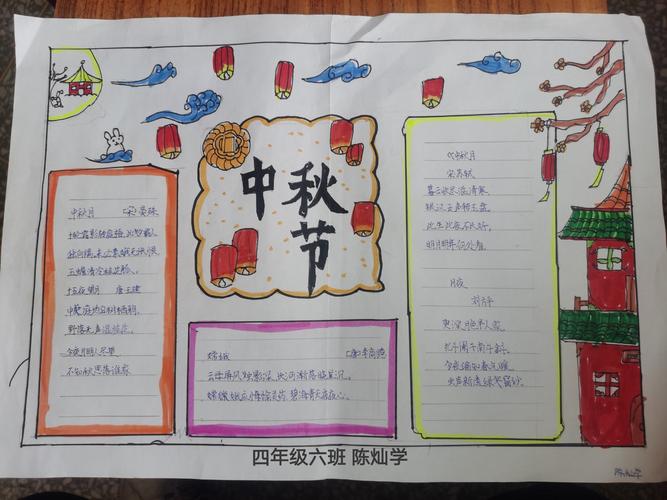 中秋节
中秋月 (宋)晏殊
十轮霜影转庭梧,此夕羁人
独向隅。未必素娥无怅恨,
玉蟾清冷桂花孤。
十五夜望月 唐王建
中庭地白树栖鸦,
冷露无声湿桂花。
今夜月明人尽望
不知秋思落谁家
嫦娥 (唐)李商隐
云母屏风烛影深,长河渐落晓星沉。
嫦娥应悔偷灵药,碧海青天夜夜心。
《中秋月》
宋苏轼
暮云收尽溢清寒
银汉无声转玉盘
此生此夜不长好
明月明年何处看
月夜
刘方平
更深月色半人家
北斗阑干南斗斜
今夜偏知春气暖
虫声新透绿窗纱
四年级六班 陈灿学
陈灿学